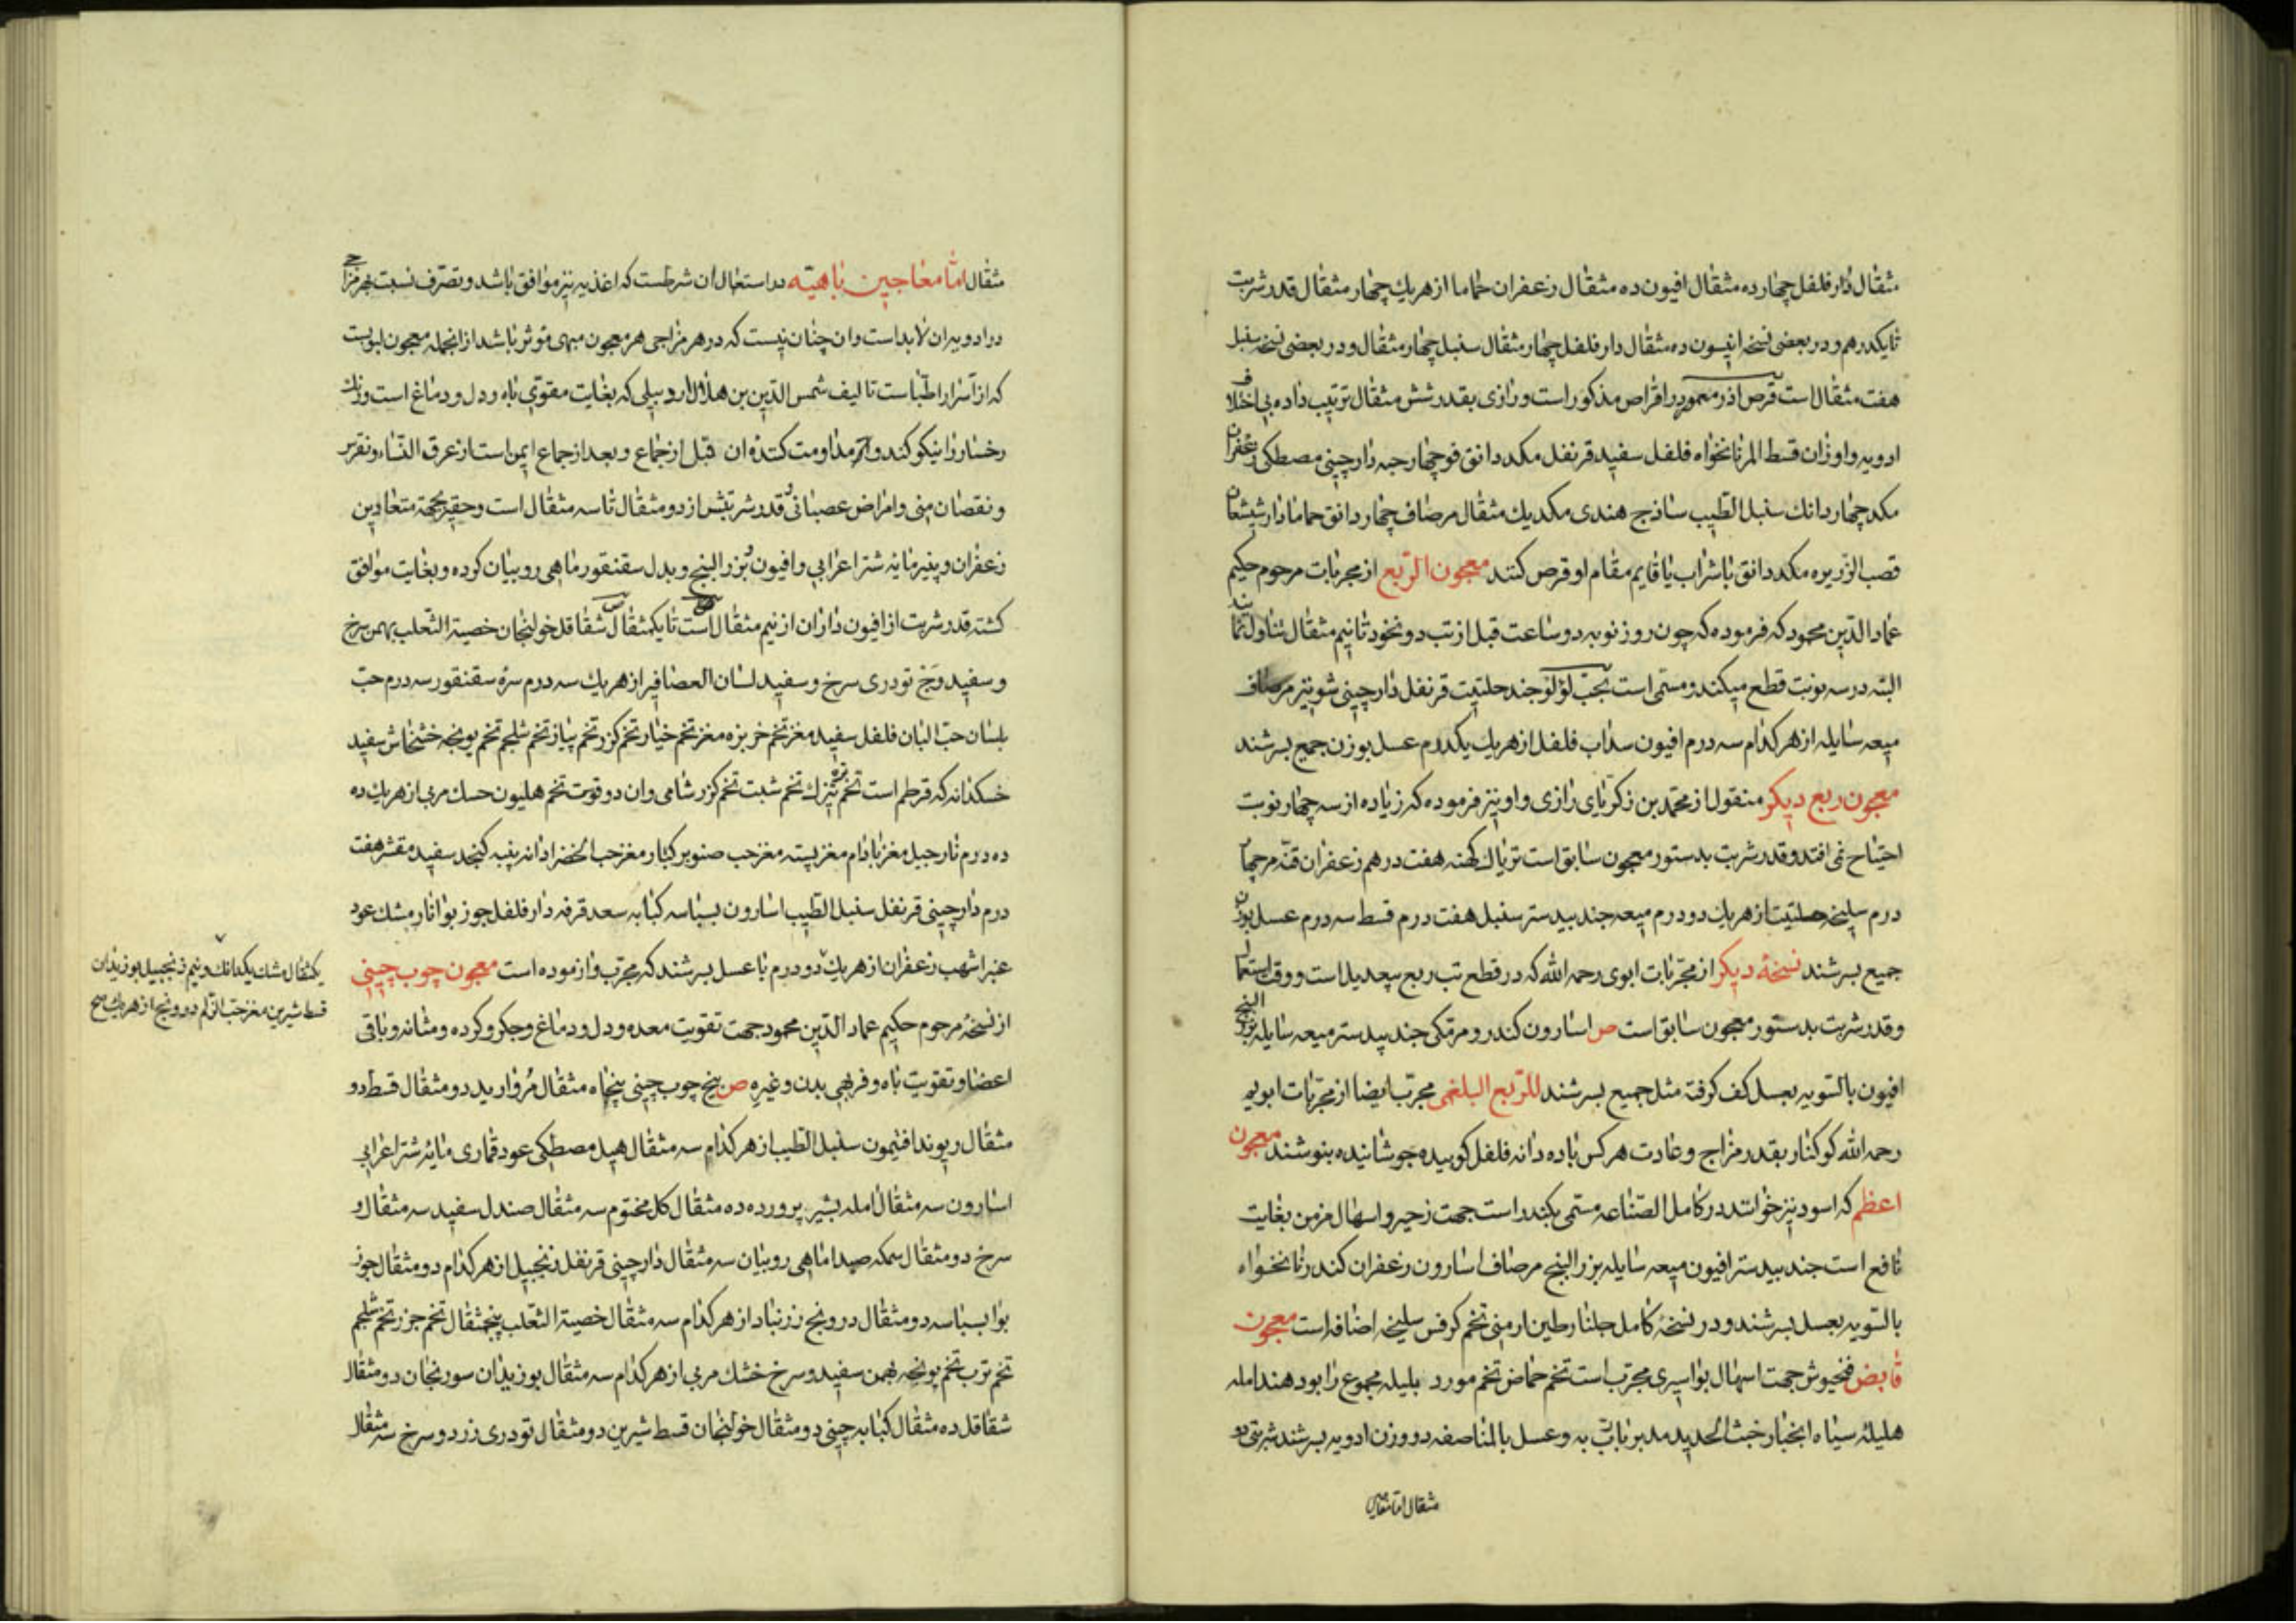 مثقال دار فلفل چهارده مثقال افیون ده مثقال زعفران حماما از هر یك چهار مثقال قدر شربت
تا یکدرهم و در بعضی نسخه انیسون ده مثقال دار فلفل چهار مثقال سنبل چهار مثقال و در بعضی نسخه سنبل
هفت مثقال است قرص اذر معمور در اقراص مذکور است و رازی بقدر شش مثقال ترتیب داده بی اختلاف
ادویه و اوزان قسط المر نانخواه فلفل سفید قرنفل مکد دانق فو چهار حبه دارچینی مصطکی زعفران
مکد چهار دانك سنبل الطیب ساذج هندی مکد یك مثقال مرصاف چهار دانق حماما دار شیشعان
قصب الزریره مکد دانق با شراب یا قایم مقام او قرص کنند معجون الربع از مجربات مرحوم حکیم
عماد الدین محمود که فرموده که چون روز نوبه دو ساعت قبل از تب دو نخود تا نیم مثقال تناول نمایند
البته در سه نوبت قطع میکند و مسمی است بحب لؤلؤ جند حلتیت قرنفل دارچینی شونیز مرصاف
میعه سایله از هر کدام سه درم افیون سداب فلفل از هر یك یکدرم عسل بوزن جمیع بسرشند
معجون ربع دیکر منقول از محمد بن زکریای رازی و او نیز فرموده که زیاده از سه چهار نوبت
احتیاج نمی افتد و قدر شربت بدستور معجون سابق است تریاك کهنه هفت درهم زعفران قنه مر چهار
درم سلیخه حلتیت از هر یك دو درم میعه جند بیدستر سنبل هفت درم قسط سه درم عسل بوزن
جمیع بسرشند نسخهٔ دیکر از مجربات ابوی رحمه الله که در قطع تب ربع بیعدیل است و وقت استعمال
و قدر شربت بدستور معجون سابق است ص اسارون کندر و مر مکی جند بیدستر میعه سایله بزر البنج
افیون بالسویه بعسل کف کرفته مثل جمیع بسرشند للربع البلغمی مجرب ایضا از مجربات ابویه
رحمه الله کوکنار بقدر مزاج و عادت هر کس با ده دانه فلفل کوبیده جوشانیده بنوشند معجون
اعظم که اسود نیز خوانند در کامل الصناعه مسمی بکندر است جهت زحیر و اسهال مزمن بغایت
نافع است جند بیدستر افیون میعه سایله بزر البنج مرصاف اسارون زعفران کندر نانخواه
بالسویه بعسل بسرشند و در نسخهٔ کامل جلنار طین ارمنی تخم کرفس سلیخه اضافه است معجون
قابض فنجیوش جهت اسهال بواسیری مجرب است تخم حماض تخم مورد بلیله مجموع را بو دهند امله
هلیلهٔ سیاه انجبار خبث الحدید مدبر باب به و عسل بالمناصفه دو وزن ادویه بسرشند شربتی دو
مثقال اما معاجین
مثقال اما معاجین باهیته در استعمال ان شرطست که اغذیه نیز موافق باشد و تصرف نسبت بهر مزاج
در ادویه ان لابد است و ان چنان نیست که در هر مزاجی هر معجون مبهی موثر باشد از انجمله معجون لبوبست
که از اسرار اطباست تالیف شمس الدین بن هلال اردبیلی که بغایت مقوی باه و دل و دماغ است و رنك
رخسار را نیکو کند و اکر مداومت کننده ان قبل از جماع و بعد از جماع ایمن است از عرق النساء و نقرس
و نقصان منی و امراض عصبانی و قدر شربتش از دو مثقال تا سه مثقال است و حقیر بجهة متعادین
زعفران و پنیر مایهٔ شتر اعرابی و افیون و بزر البنج و بدل سقنقور ماهی روبیان کرده و بغایت موافق
کشته قدر شربت از افیون داران از نیم مثقال است تا یکمثقال ص شقاقل خولنجان خصیة الثعلب بهمن سرخ
و سفید وج تودری سرخ و سفید لسان العصافیر از هر یك سه درم سرهٔ سقنقور سه درم حب
بلسان حب البان فلفل سفید مغز تخم خربزه مغز تخم خیار تخم کزر تخم پیاز تخم شلجم تخم یونجه خشخاش سفید
خسکدانه که قرطم است تخم تره تیزك تخم شبت تخم کزر شامی و ان دوقوست تخم هلیون حسك مربی از هر یك ده
ده درم نارجیل مغز بادام مغز پسته مغز حب صنوبر کبار مغز حب الخضرا دانه پنبه کنجد سفید مقشر هفت
درم دارچینی قرنفل سنبل الطیب اسارون بسباسه کبابه سعد قرفه دار فلفل جوز بوا نار مشك عود
عنبر اشهب زعفران از هر یك دو درم با عسل بسرشند که مجرب و ازموده است معجون چوب چینی
از نسخهٔ مرحوم حکیم عماد الدین محمود جهت تقویت معده و دل و دماغ و جکر و کرده و مثانه و باقی
اعضا و تقویت باه و فربهی بدن و غیره ص بیخ چوب چینی پنجاه مثقال مروارید دو مثقال قسط دو
مثقال ریوند افتیمون سنبل الطیب از هر کدام سه مثقال هیل مصطکی عود قماری مایهٔ شتر اعرابی
اسارون سه مثقال امله بشیر پرورده ده مثقال کل مختوم سه مثقال صندل سفید سه مثقال و
سرخ دو مثقال سمکه صیدا ماهی روبیان سه مثقال دارچینی قرنفل زنجبیل از هر کدام دو مثقال جوز
بوا بسباسه دو مثقال درونج زرنباد از هر کدام سه مثقال خصیة الثعلب پنجمثقال تخم جزر تخم شلجم
تخم ترب تخم یونجه بهمن سفید و سرخ خشك مربی از هر کدام سه مثقال بوزیدان سورنجان دو مثقال
شقاقل ده مثقال کبابه چینی دو مثقال خولنجان قسط شیرین دو مثقال تودری زرد و سرخ سه مثقال
یکمثقال مشك یکدانك و نیم زنجبیل بوزیدان
قسط شیرین مغز حب الزلم درونج از هر یك پنج